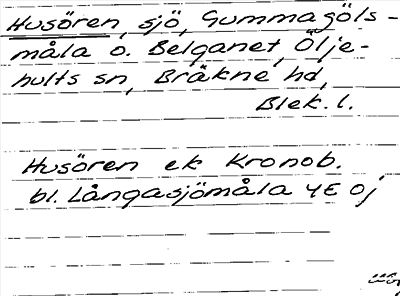 Husören, sjö, Gummagöls-
måla o. Belganet, Ölje-
hults sn, Bräkne hd,
Blek. l.
Husören ek Kronob.
bl. Långasjömåla 4E oj